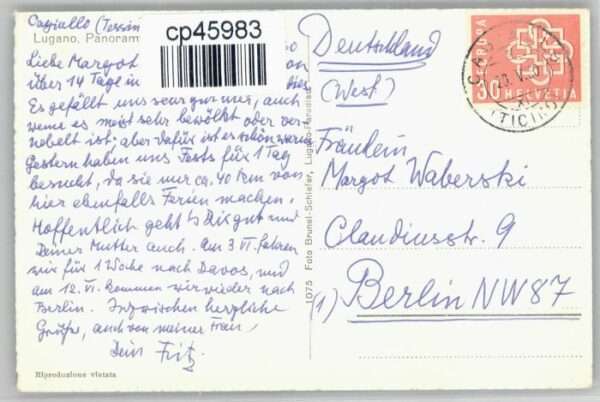 Cagiallo (Tessin
Lugano, Panoram
cp45983
Liebe Margot
über 14 Tage in
Es gefällt uns sehr gut hier, auch
wenn es meist sehr bewölkt oder ver-
nebelt ist; aber dafür ist es schön warm
Gestern haben uns Fests für 1 Tag
besucht, da sie nur ca. 40 km von
hier ebenfalls Ferien machen.
Hoffentlich geht's Dir gut und
Deiner Mutter auch. Am 3. VI. fahren
wir für 1 Woche nach Davos, und
am 12. VI. kommen wir wieder nach
Berlin. Inzwischen herzliche
Grüße, auch von meiner Frau,
Dein Fritz.
Riproduzione vietata
1075 Foto Brunel-Schiefer, Lugano-Paradiso
Deutschland
(West)
EUROPA
30 HELVETIA
(TICINO)
Fräulein
Margot Waberski
Claudiusstr. 9
(1) Berlin NW87